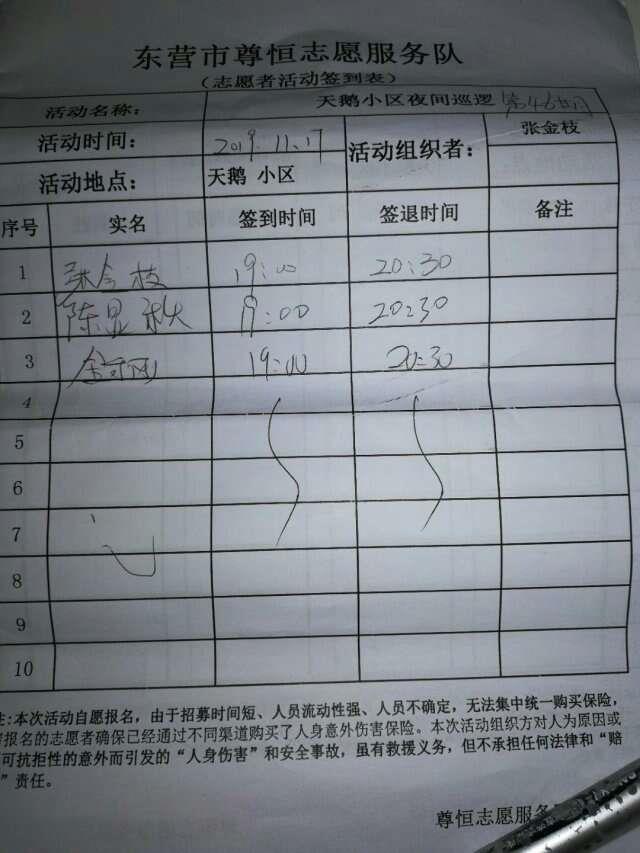 东营市尊恒志愿服务队
（志愿者活动签到表）
活动名称： 天鹅小区夜间巡逻
活动时间： 2019.11.17 活动组织者： 张金枝
活动地点： 天鹅 小区
序号 实名 签到时间 签退时间 备注
1 张金枝 19:00 20:30
2 陈显秋 19:00 20:30
3 19:00 20:30
4
5
6
7
8
9
10
注:本次活动自愿报名，由于招募时间短、人员流动性强、人员不确定，无法集中统一购买保险，
报名的志愿者确保已经通过不同渠道购买了人身意外伤害保险。本次活动组织方对人为原因或
可抗拒性的意外而引发的“人身伤害”和安全事故，虽有救援义务，但不承担任何法律和“赔
”责任。
尊恒志愿服务